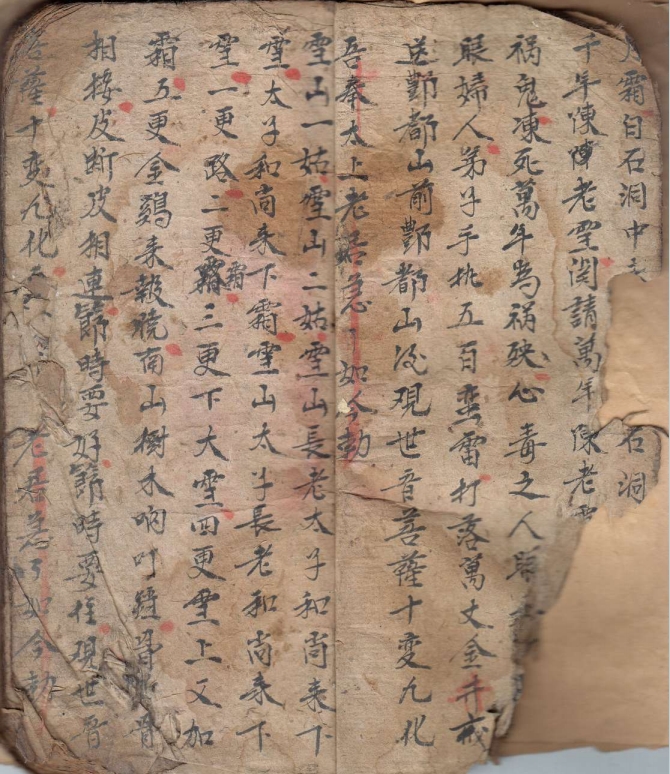 霜白石洞中 石洞
千年陳陳老雪閑請萬年陳老
禍鬼凍死萬年為禍殃心毒之人
眼婦人弟子手批五百蛮雷打落萬丈金井
送酆都山前酆都山後現世音菩薩十变九化
吾奉太上老君急〻如令勅
雪山一姑雪山二姑雪山長老太子和尚来下
雪太子和尚来下霜雪山太子長老和尚来下
雪一更路二更霜霜三更下大雪四更雪上又加
霜五更金鷄来報晓南山樹木响叮
相接皮断皮相連節時要好節時要住現世音
菩薩十变九化 老君急〻如令勅